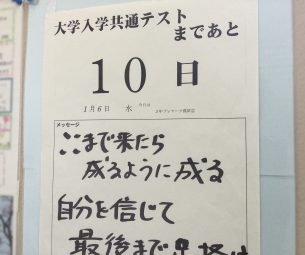 大学入学共通テスト
まであと
10日
1月6日 水 今日は
メッセージ
ここまで来たら
成るように成る
自分を信じて
最後まで